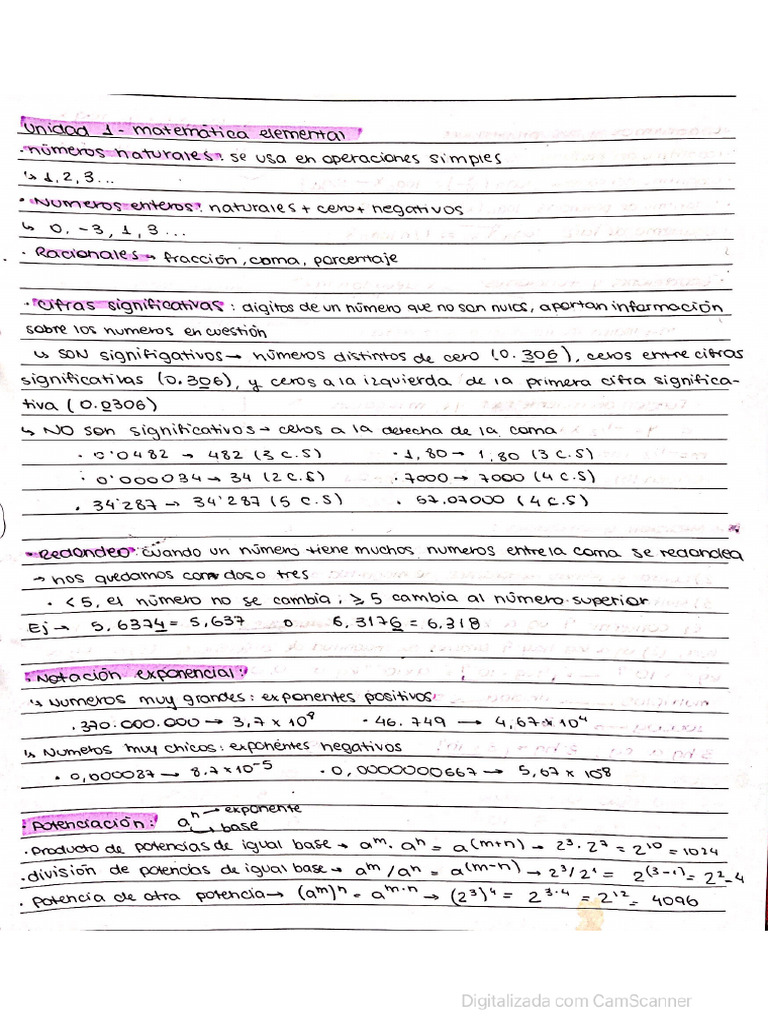 Unidad 1 - matemática elemental
· números naturales: se usa en operaciones simples
↳ 1, 2, 3...
· Numeros enteros: naturales + cero + negativos
↳ 0, -3, 1, 3...
· Racionales → fracción, coma, porcentaje
· Cifras significativas: digitos de un número que no son nulos, aportan información
sobre los numeros en cuestión
↳ SON signifigativos → números distintos de cero (0.306), ceros entre cifras
significativas (0.306), y ceros a la izquierda de la primera cifra significa-
tiva (0.0306)
↳ NO son significativos → ceros a la derecha de la coma
· 0'0482 → 482 (3 C.S) · 1,80 → 1,80 (3 C.S)
· 0'000034 → 34 (2 C.S) · 7000 → 7000 (4 C.S)
· 34'287 → 34'287 (5 C.S) · 57.07000 (4 C.S)
· Redondeo: cuando un número tiene muchos numeros entre la coma se redondea
→ nos quedamos con dos o tres
· <5, el número no se cambia; ≥5 cambia al número superior
Ej → 5,6374 = 5,637 o 6,3176 = 6,318
· Notación exponencial:
↳ Numeros muy grandes: exponentes positivos
· 370.000.000 → 3,7 x 10⁸ · 46.749 → 4,67 x 10⁴
↳ Numeros muy chicos: exponentes negativos
· 0,000087 → 8.7 x 10⁻⁵ · 0,0000000667 → 5,67 x 10⁸
· Potenciación: aⁿ → exponente
→ base
· Producto de potencias de igual base → aᵐ · aⁿ = a(m+n) → 2³ · 2⁷ = 2¹⁰ = 1024
· división de potencias de igual base → aᵐ / aⁿ = a(m-n) → 2³/2¹ = 2⁽³⁻¹⁾ = 2² = 4
· Potencia de otra potencia → (aᵐ)ⁿ = aᵐ·ⁿ → (2³)⁴ = 2³·⁴ = 2¹² = 4096
Digitalizada com CamScanner